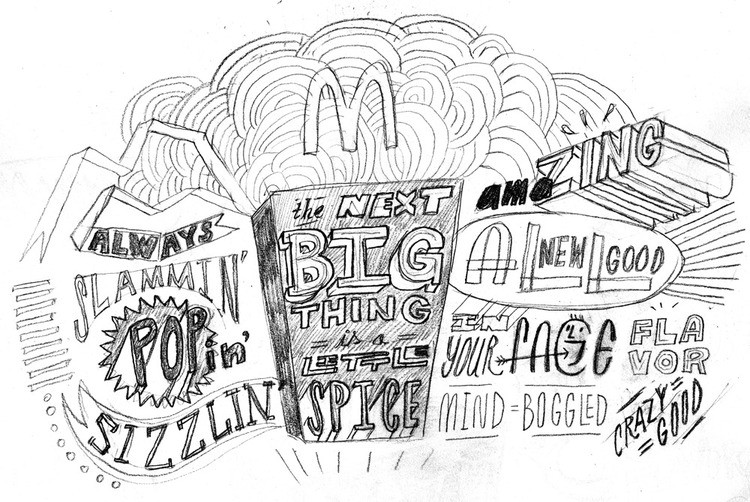 M
ALWAYS
SLAMMIN'
POPin'
SIZZLIN'
the NEXT
BIG
THING
is a
LITTLE
SPICE
amaZING
ALL NEW GOOD
IN
YOUR FACE
FLA
VOR
MIND = BOGGLED
CRAZY =
= GOOD